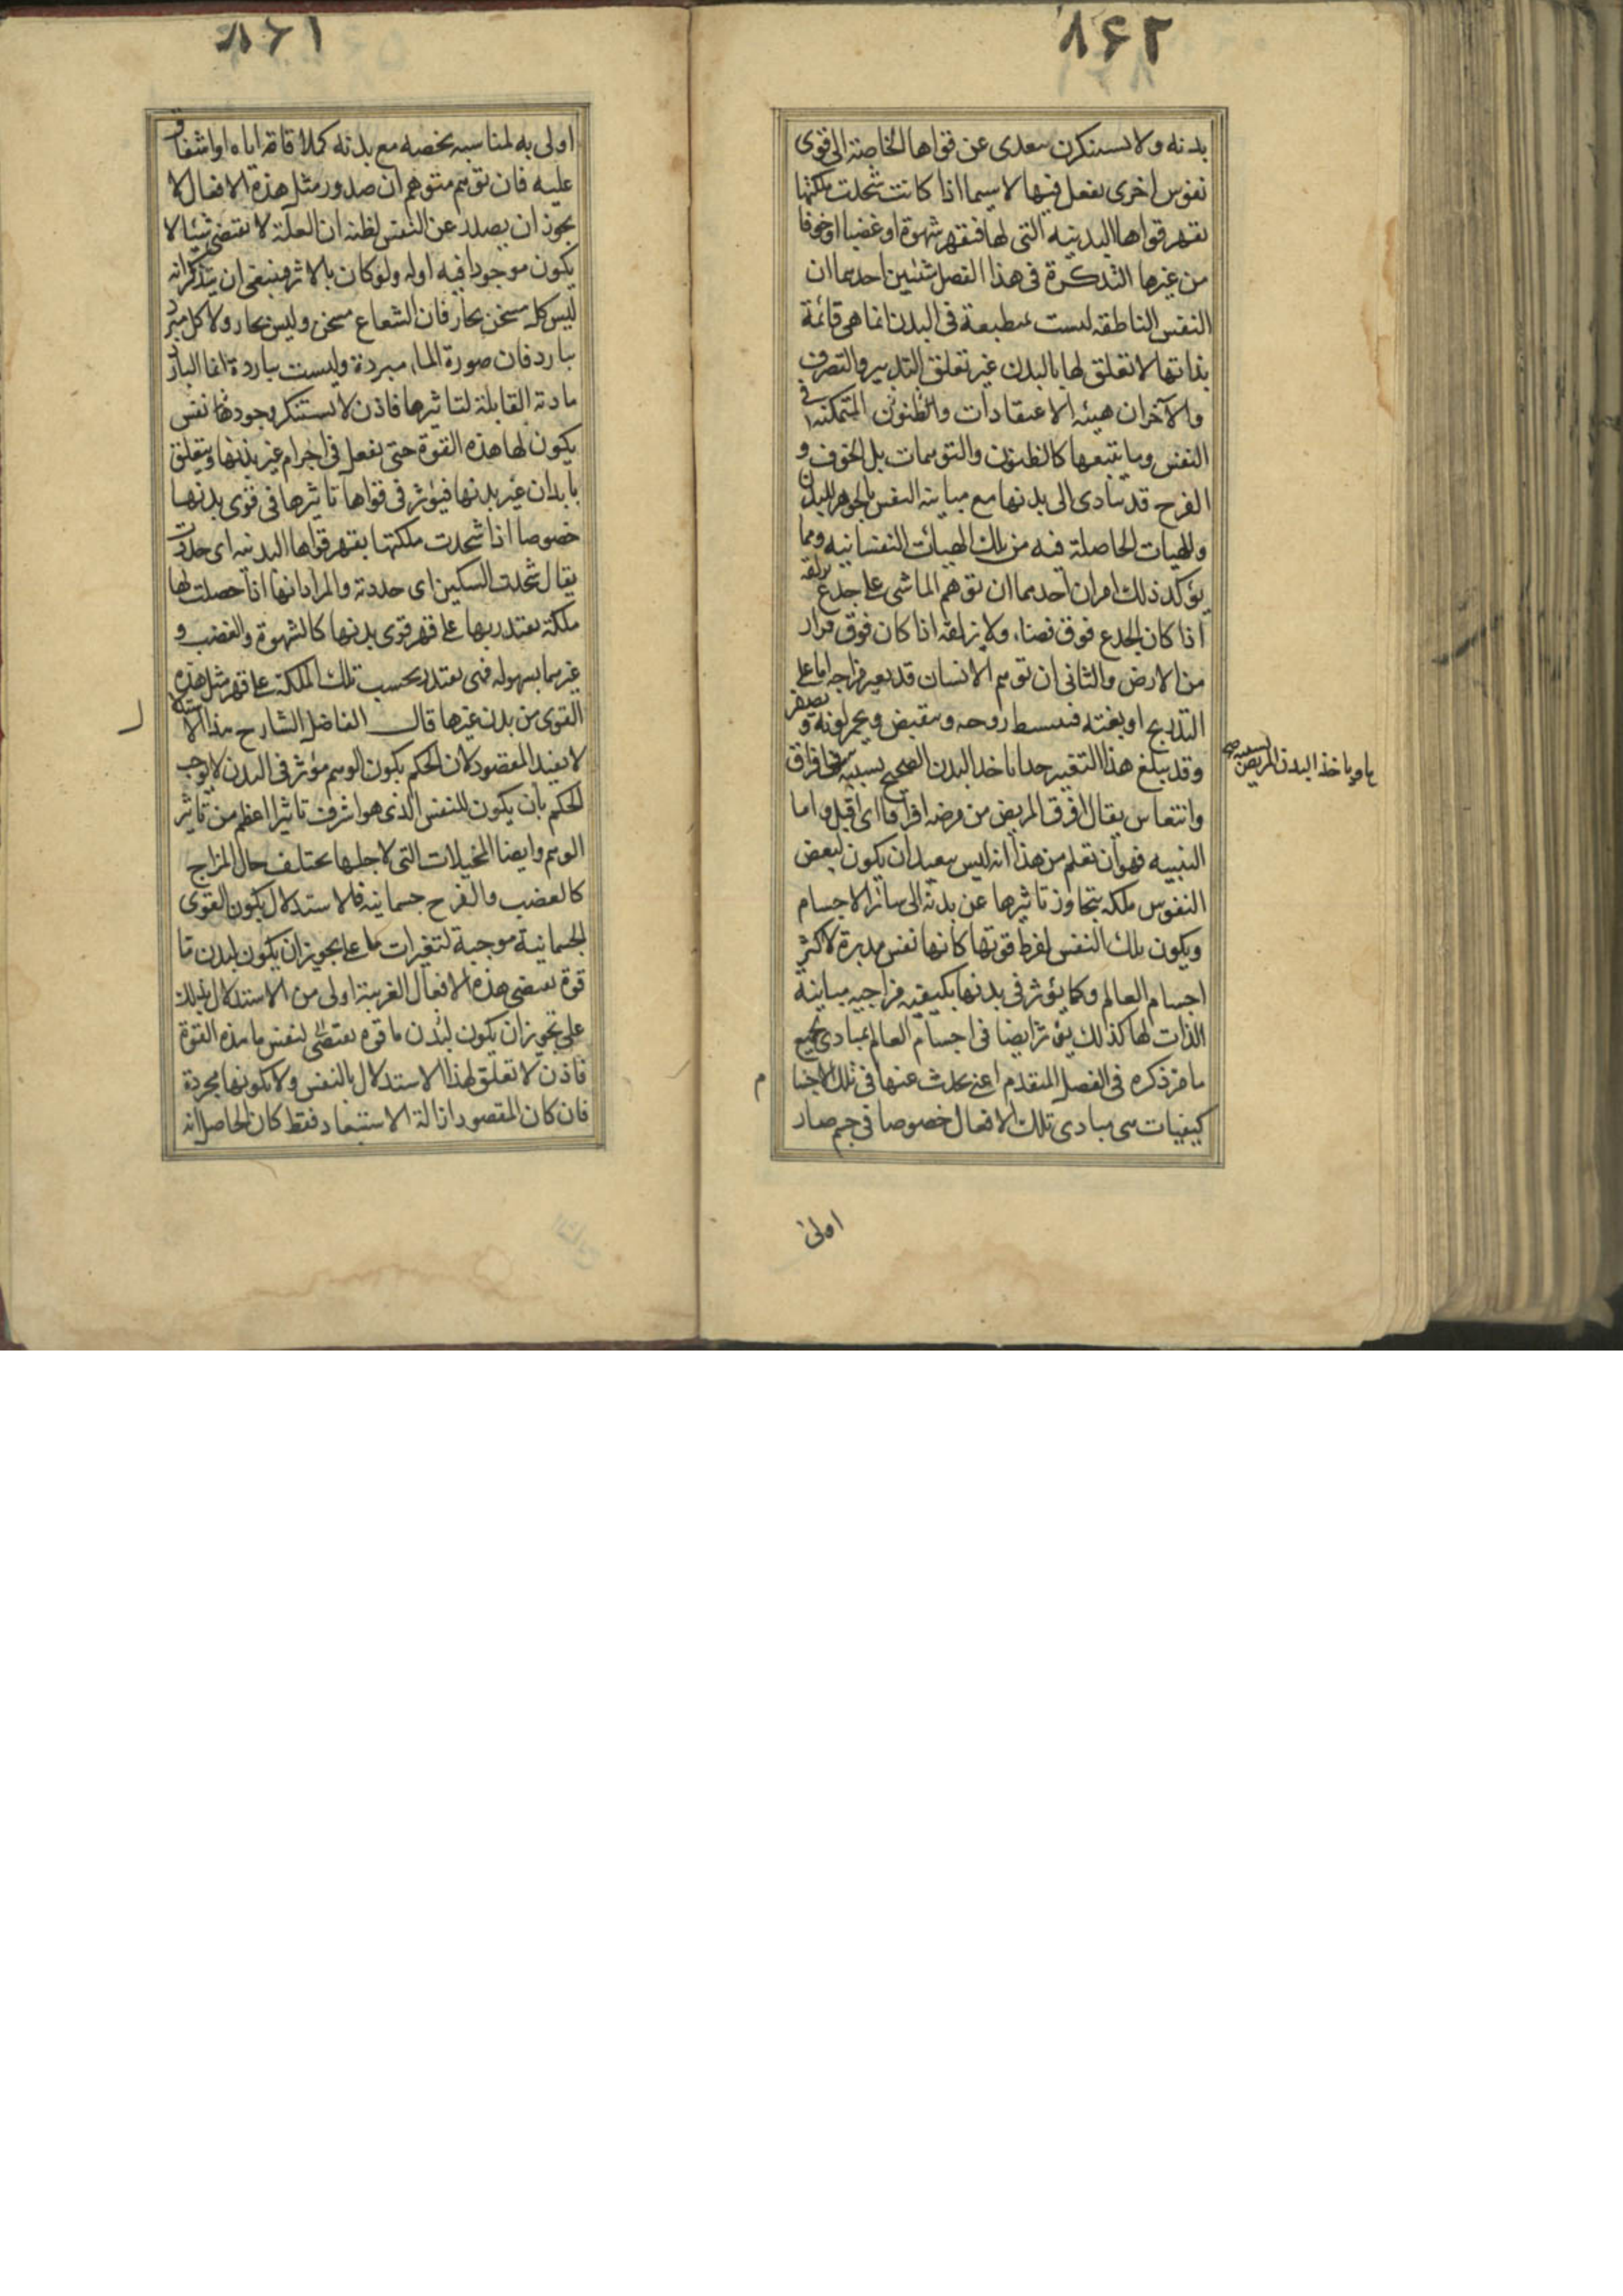 ٨٦٢
بدنه ولا تستنكرن يتعدى عن قواها الخاصة الى قوى
نفوس اخرى يفعل فيها لا سيما اذا كانت شحذت ملكتها
بقهر قواها البدنيه التى لها فتقهر شهوة او غضبا او خوفا
من غيرها التذكرة فى هذا الفصل شيئين احدهما ان
النفس الناطقه ليست بمنطبعة فى البدن انما هى قائمة
بذاتها لا تعلق لها بالبدن غير تعلق التدبير والتصرف
والآخر ان هيئه الاعتقادات والظنون المتمكنه فى
النفس وما يتبعها كالظنون والتوهمات بل الخوف و
الفرح قد يتأدى الى بدنها مع مباينه النفس بالجوهر للبدن
وللهيات الحاصلة فيه من تلك الهيات النفسانيه ومما
يؤكد ذلك امران احدهما ان توهم الماشى على جذع يزلقه
اذا كان الجذع فوق فضاء ولا يزلقه اذا كان فوق قرار
من الارض والثانى ان توهم الانسان قد يغير مزاجه اما على
التدريج او بغته فتنبسط روحه وينقبض ويحمر لونه و يصفر
وقد يبلغ هذا التغير حدا ياخذ البدن الصحيح بسببه فى افراق
وانتعاس يقال افرق المريض من مرضه افراقا اى اقبل واما
التنبيه فهو ان تعلم من هذا انه ليس ببعيد ان يكون لبعض
النفوس ملكه يتجاوز تاثيرها عن بدنه الى سائر الاجسام
ويكون تلك النفس لفرط قوتها كانها نفس مدبرة لاكثر
اجسام العالم وكما يؤثر فى بدنها بكيفيه مزاجيه مباينة
الذات لها كذلك يؤثر ايضا فى اجسام العالم بمبادى جميع
ما مر ذكره فى الفصل المتقدم اعنى يحدث عنها فى تلك الاجسا
م
كيفيات هى مبادى تلك الافعال خصوصا فى جسم صار
اولى
ويأخذ البدن المريض بسببه صح
٨٦١
اولى به لمناسبه تخصه مع بدنه كملاقاة اياه او اشفاق
عليه فان توهم متوهم ان صدور مثل هذه الافعال لا
يجوز ان يصدر عن النفس لظنه ان العلة لا تقتضى شيئا لا
يكون موجودا فيه اوله ولو كان بالاثر فينبغى ان يتذكر انه
ليس كل مسخن بحار فان الشعاع مسخن وليس بحار ولا كل مبرد
ببارد فان صورة الماء مبردة وليست باردة انما البارد
مادته القابلة لتاثيرها فاذن لا يستنكر وجود نفس
يكون لها هذه القوة حتى تفعل فى اجرام غير بدنها ويتعلق
بابدان غير بدنها فيؤثر فى قواها تاثيرها فى قوى بدنها
خصوصا اذا شحذت ملكتها بقهر قواها البدنيه اى حددت
يقال شحذت السكين اى حددته والمراد انها اذا حصلت لها
ملكة يقتدر بها على قهر قوى بدنها كالشهوة والغضب و
غيرهما بسهوله فهى يقتدر بحسب تلك الملكة على قهر مثل هذه
القوى من بدن غيرها قال الفاضل الشارح هذا الاستدلال
لا يفيد المقصود لان الحكم بكون الوهم مؤثر فى البدن لا يوجب
الحكم بان يكون للنفس الذى هو اشرف تاثيرا اعظم من تاثير
الوهم وايضا التخيلات التى لاجلها يختلف حال المزاج
كالغضب والفرح جسمانيه فالاستدلال بكون القوى
الجسمانية موجبة لتغيرات ما على تجويز ان يكون لبدن ما
قوة تقتضى هذه الافعال الغريبة اولى من الاستدلال بذلك
على تجويز ان يكون لبدن ما قوة يقتضى لنفس ما هذه القوة
فاذن لا تعلق لهذا الاستدلال بالنفس ولا بكونها مجردة
فان كان المقصود ازالة الاستبعاد فقط كان الحاصل انه